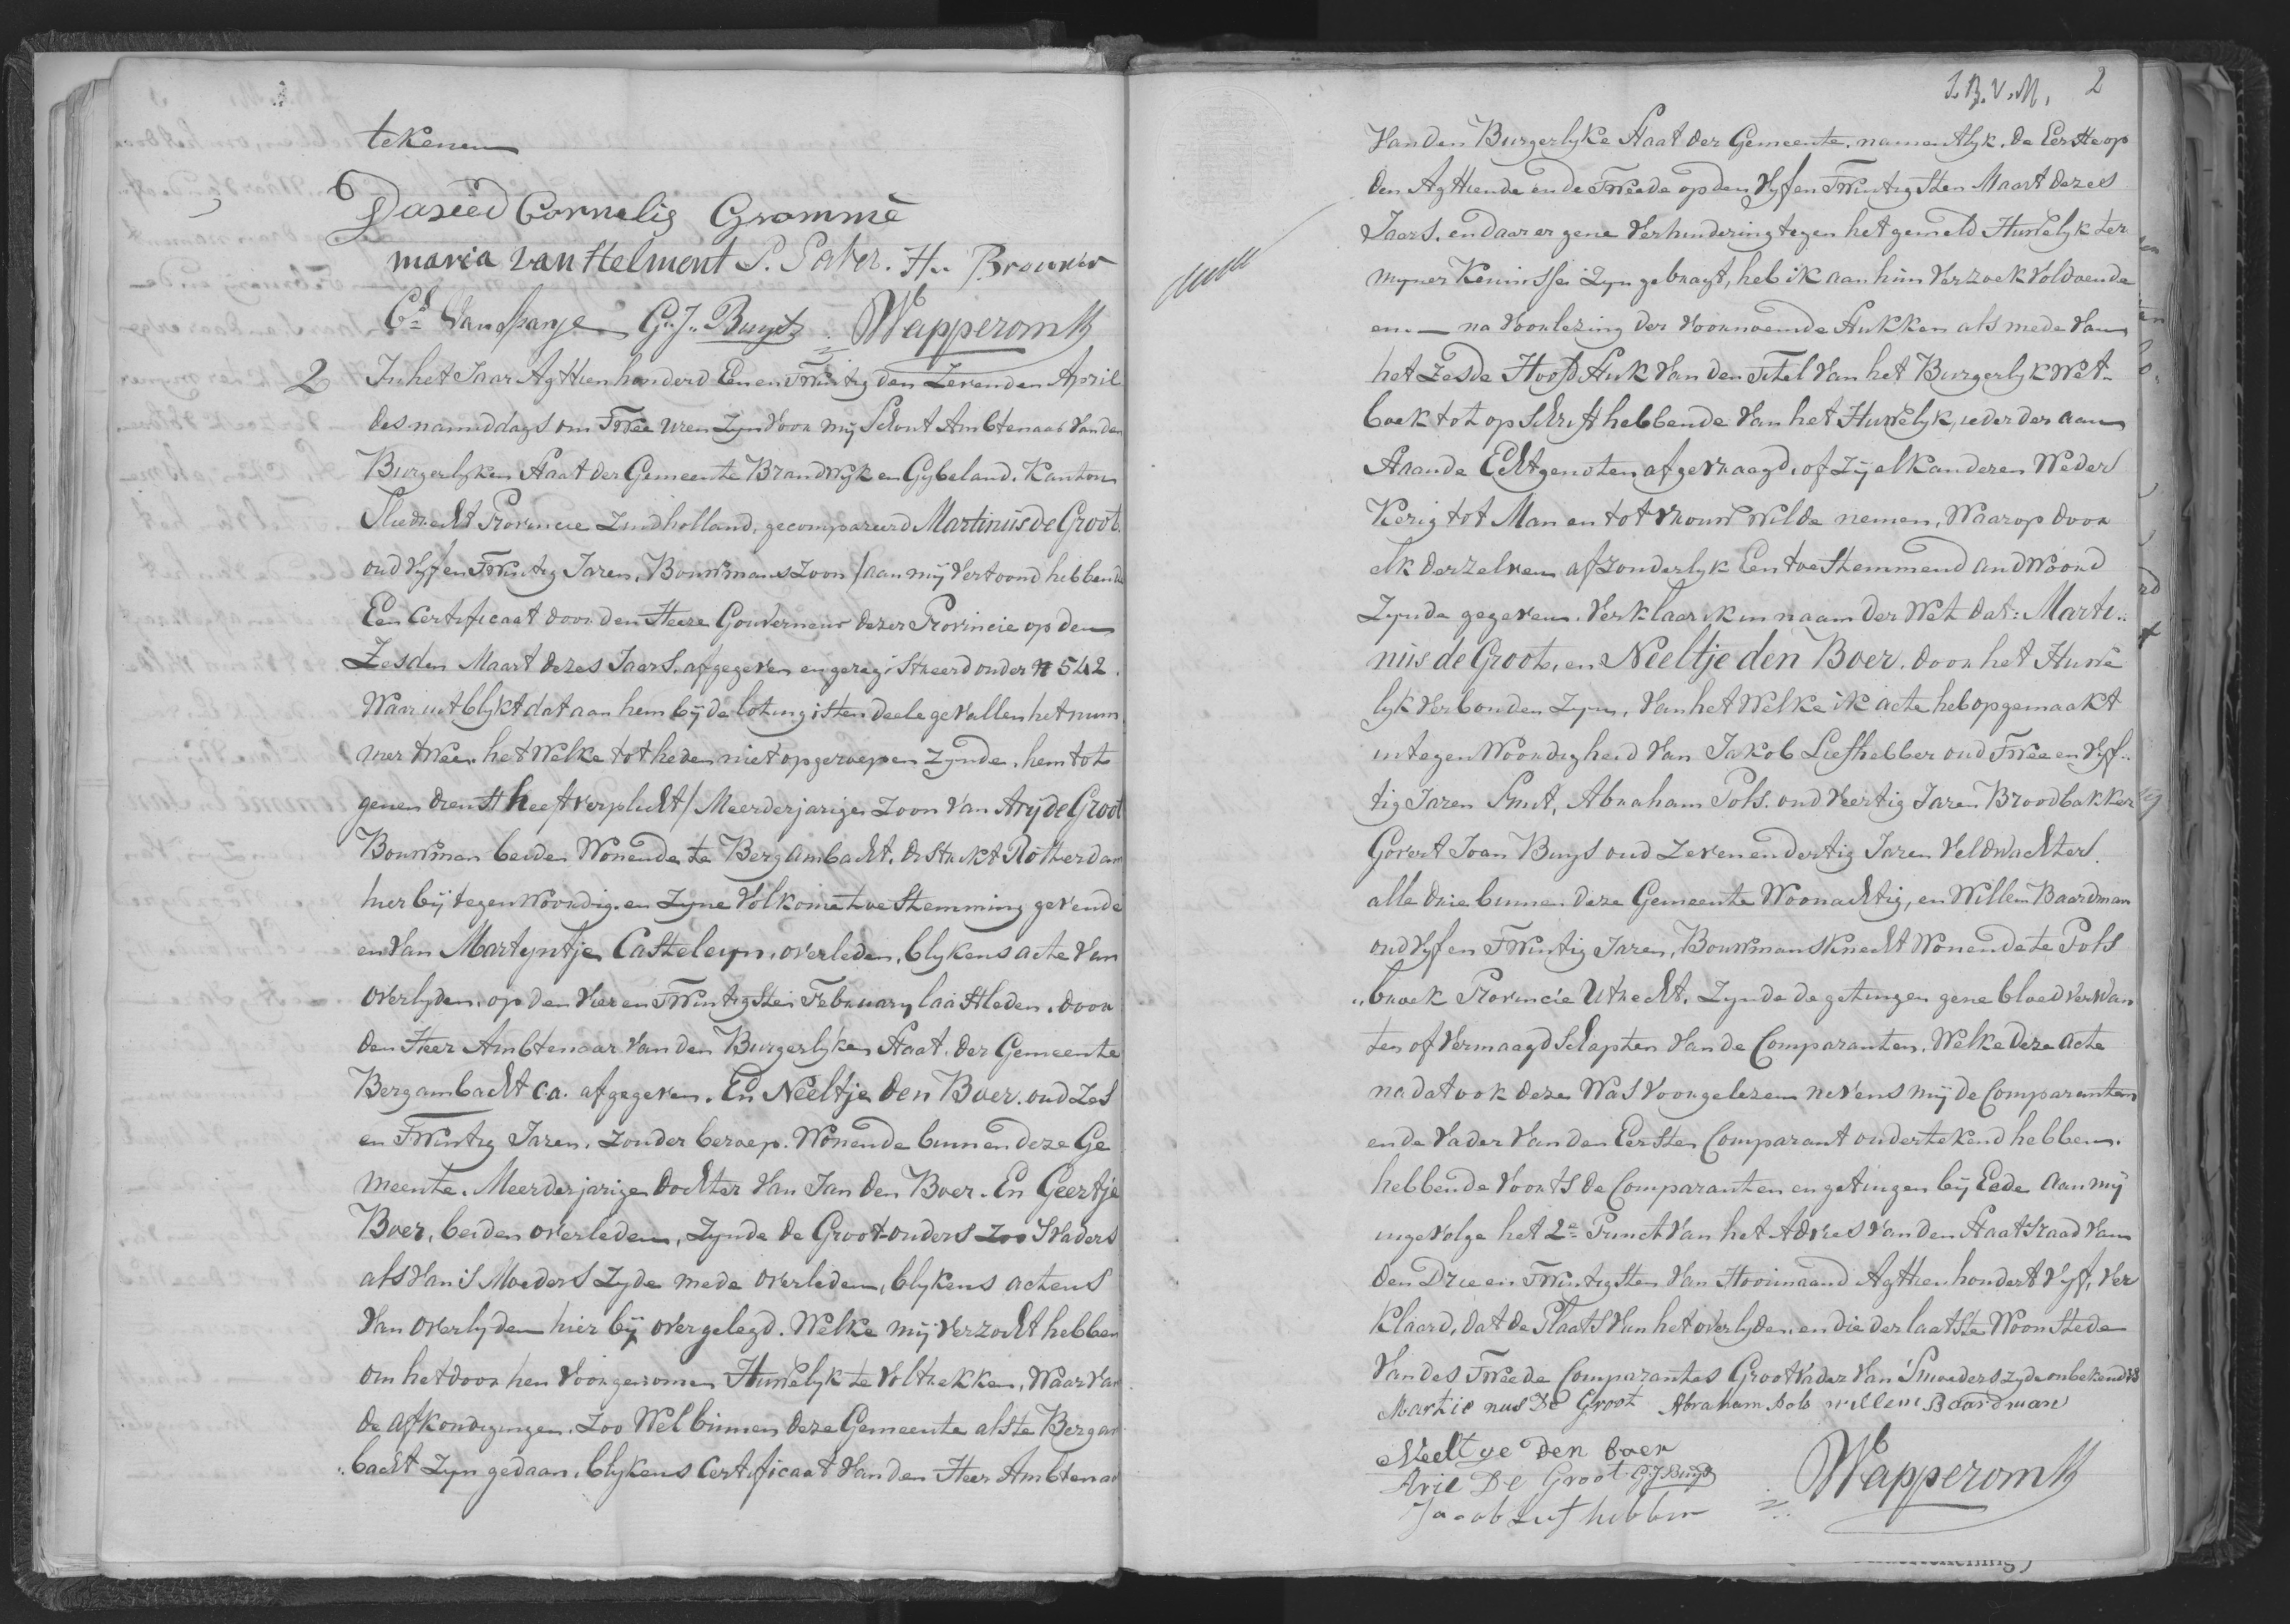 tekenen
David Cornelis Grommé
maria van Helmont P. Pater. H. Brouwer
Cs Van Spanje G. J. Buijs Wapperom
2 In het Jaar Agttienhonderd Een en Twintig den Zevenden April
des namiddags om Twee uren Zyn Voor mij Schout Ambtenaar Van den
Burgerlyken Staat der Gemeente Brandwyk en Gybeland. Kanton
Sliedrecht Provincie Zuidholland, gecompareerd Martinus de Groot.
oud Vyf en Twintig Jaren, Bouwmans Zoon /aan mij Vertoond hebbende
Een Certificaat door den Heere Gouverneur dezer Provincie op den
Zesden Maart dezes Jaars. afgegeven en geregistreerd onder N 542.
Waar uit blykt dat aan hem bij de loting is ten deele gevallen het num
mer twee. het Welke tot heden niet opgeroepen Zynde. hem tot
genen dienst heeft verplicht/ Meerderjarigen Zoon Van Arij de Groot
Bouwman beiden Wonende te Bergambacht. distrikt Rotterdam
hier bij tegenwoordig. en Zyne Volkome toestemming gevende
en Van Martyntje Casteleyn, overleden, blykens acte Van
Overlyden. op den Vier en Twintigsten February laastleden. door
den Heer Ambtenaar Van den Burgerlyken Staat. der Gemeente
Bergambacht ca. afgegeven. En Neeltje den Boer. oud Zes
en Twintig Jaren. Zonder beroep. Wonende binnen deze Ge
meente. Meerderjarige dochter Van Jan den Boer. En Geertje
Boer, beiden overleden, Zynde de Groot-Ouders Zoo S'Vaders
als Van S Moeders Zyde mede overleden, blykens actens
Van Overlyden hier bij overgelegd. Welke mij verzocht hebben
om het door hen Voorgenomen Huwelyk te Voltrekken, Waar Van
de afkondigingen. Zoo Wel binnen deze Gemeente als te Bergam
bacht Zyn gedaan, blykens Certificaat Van den Heer Ambtenaar
2
Van den Burgerlyke Staat der Gemeente. namentlyk. de Eerste op
den Agttiende en de Tweede op den Vyf en Twintigsten Maart dezes
Jaars. en daar er gene Verhindering tegen het gemeld Huwelyk ter
myner Kennisse Zyn gebragt, heb ik aan hun Verzoek Voldoende
en na Voorlezing der Voornoemde Stukken als mede Van
het Zesde Hoofdstuk Van den Titel Van het Burgerlyk Wet-
boek tot opschrift hebbende Van het Huwelyk, ieder der aan
Staande Echtgenoten, afgevraagd. of Zij elkanderen Weder
Kerig tot Man en tot Vrouw Wilde nemen, Waarop door
elk derzelven afzonderlyk Een toestemmend andwoord
Zynde gegeven. Verklaar ik in naam der Wet dat: Marti..
nus de Groot, en Neeltje den Boer. door het Huwe
lyk Verbonden Zyn, Van het Welke ik acte heb opgemaakt
in tegenwoordigheid Van Jakob Liefhebber oud Twee en Vyf..
tig Jaren Smit, Abraham Pols. oud Veertig Jaren Broodbakker
Govert Joan Buys oud Zeven en dertig Jaren Veldwachter
alle drie binnen deze Gemeente Woonachtig, en Willem Baardman
oud Vyf en Twintig Jaren, Bouwmansknecht Wonende te Pols
„broek Provincie Utrecht. Zynde de getuigen gene bloedverwan
ten of Vermaagdschapten Van de Comparanten. Welke deze acte
na dat ook deze Was Voorgelezen nevens mij de Comparanten
en de Vader Van den Eersten Comparant ondertekend hebben.
hebbende Voorts de Comparanten en getuigen bij Eede aan mij
ingevolge het 2e Punct Van het Advies Van den Staatsraad Van
den Drie en Twintigsten Van Hooimaand Agttienhondert Vyf, Ver
klaard, dat de Plaats Van het overlyden. en die der laatste Woonstede
Van des Tweede Comparantes Grootvader Van S'moeders zyde onbekend is
Martie nus De Groot Abraham Pols willem Baardman
Neeltje Den boer
Arie De Groot G J Buijs Wapperom
Jacob Liefhebber